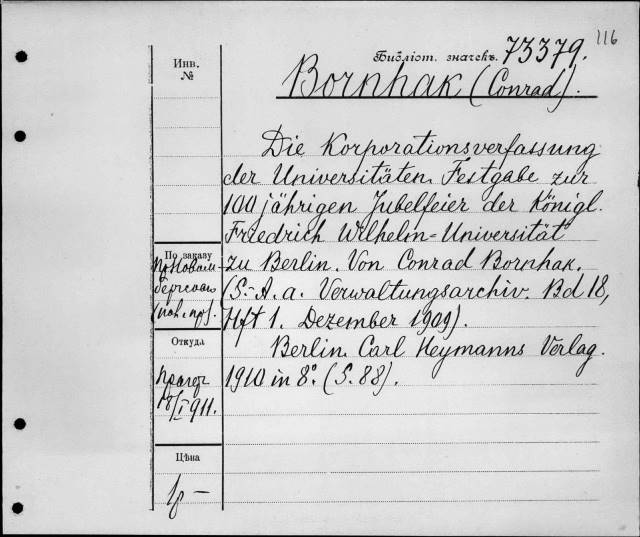 116
Библіот. значекъ. 73379.
Bornhak (Conrad).
Инв.
№
Die Korporationsverfassung
der Universitäten. Festgabe zur
100 jährigen Jubelfeier der Königl.
Friedrich Wilhelm-Universität
zu Berlin. Von Conrad Bornhak.
(S.-A. a. Verwaltungsarchiv. Bd 18,
Hft 1. Dezember 1909).
Berlin. Carl Heymanns Verlag.
1910 in 8°. (S. 88).
По заказу
Откуда
18/I 911.
Цѣна
1р —